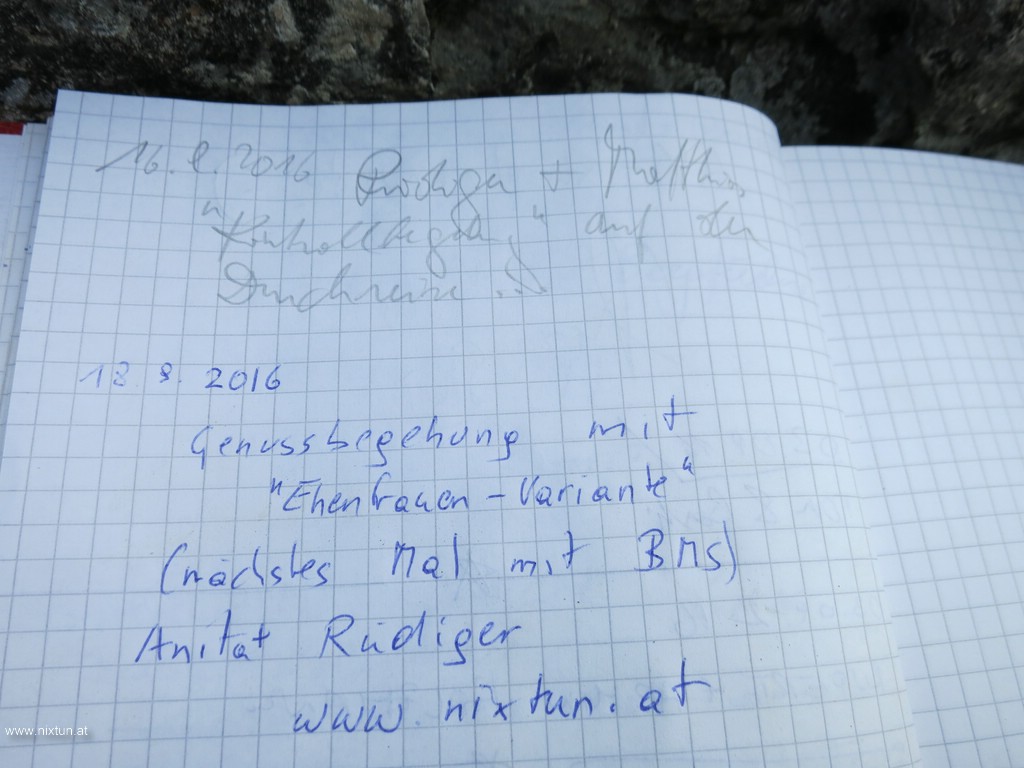 16.8.2016 + Matthias
" " auf der
Durchreise ..
18.8.2016
Genussbegehung mit
"Ehenfrauen-Variante"
(nächstes Mal mit BMS)
Anita+ Rüdiger
www.nixtun.at
www.nixtun.at